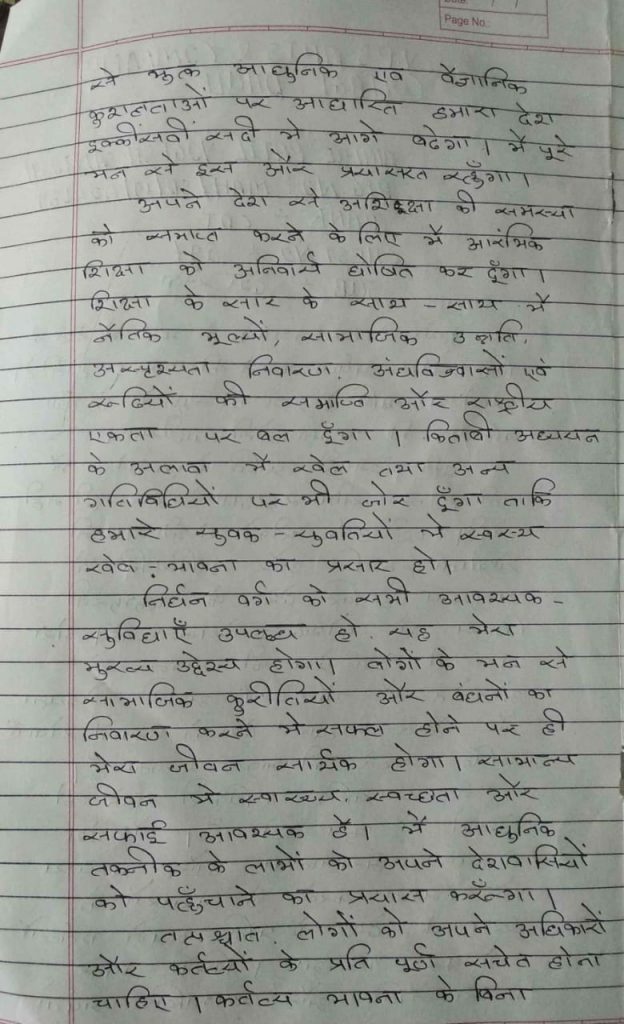 Date: / /
Page No:
से मुक्त आधुनिक एवं वैज्ञानिक
कुशलताओं पर आधारित हमारा देश
इक्कीसवीं सदी मे आगे बढेगा। मैं पूरे
मन से इस और प्रयासरत रहूँगा।
अपने देश से अशिक्षा की समस्या
को समाप्त करने के लिए मैं आरंभिक
शिक्षा को अनिवार्य घोषित कर दूँगा।
शिक्षा के सार के साथ - साथ मैं
नैतिक मूल्यों, सामाजिक उन्नति,
अस्पृश्यता निवारण, अंधविश्वासों एवं
रूढियों की समाप्ति और राष्ट्रीय
एकता पर बल दूँगा । किताबी अध्ययन
के अलावा मैं खेल तथा अन्य
गतिविधियों पर भी जोर दूँगा ताकि
हमारे युवक - युवतियों मे स्वस्थ
खेल - भावना का प्रसार हो।
निर्धन वर्ग को सभी आवश्यक -
सुविधाएँ उपलब्ध हो यह मेरा
मुख्य उद्देश्य होगा। लोगों के मन से
सामाजिक कुरीतियों और बंधनों का
निवारण करने मे सफल होने पर ही
मेरा जीवन सार्थक होगा। सामान्य
जीवन मे स्वास्थ्य, स्वच्छता और
सफाई आवश्यक है। मैं आधुनिक
तकनीक के लाभों को अपने देशवासियों
को पहुँचाने का प्रयास करूँगा।
तत्पश्चात लोगों को अपने अधिकारों
और कर्तव्यों के प्रति पूर्ण सचेत होना
चाहिए । कर्तव्य भावना के बिना